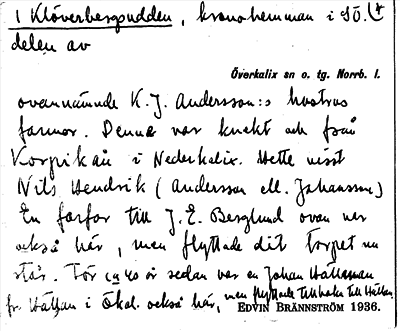 1 Klöverbergsudden, kronohemman i SÖ. (*
delen av
Överkalix sn o. tg. Norrb. l.
ovannämnde K. J. Andersson:s hustrus
farmor. Denne var knekt och från
Korpikån i Nederkalix. Hette visst
Nils Hendrik (Andersson ell. Johansson)
En farfor till J. E. Berglund ovan var
också här, men flyttade dit torpet nu
står. För ca 40 år sedan var en Johan
fr. i Ökal. också här, men flyttade tillbaka till
EDVIN BRÄNNSTRÖM 1936.